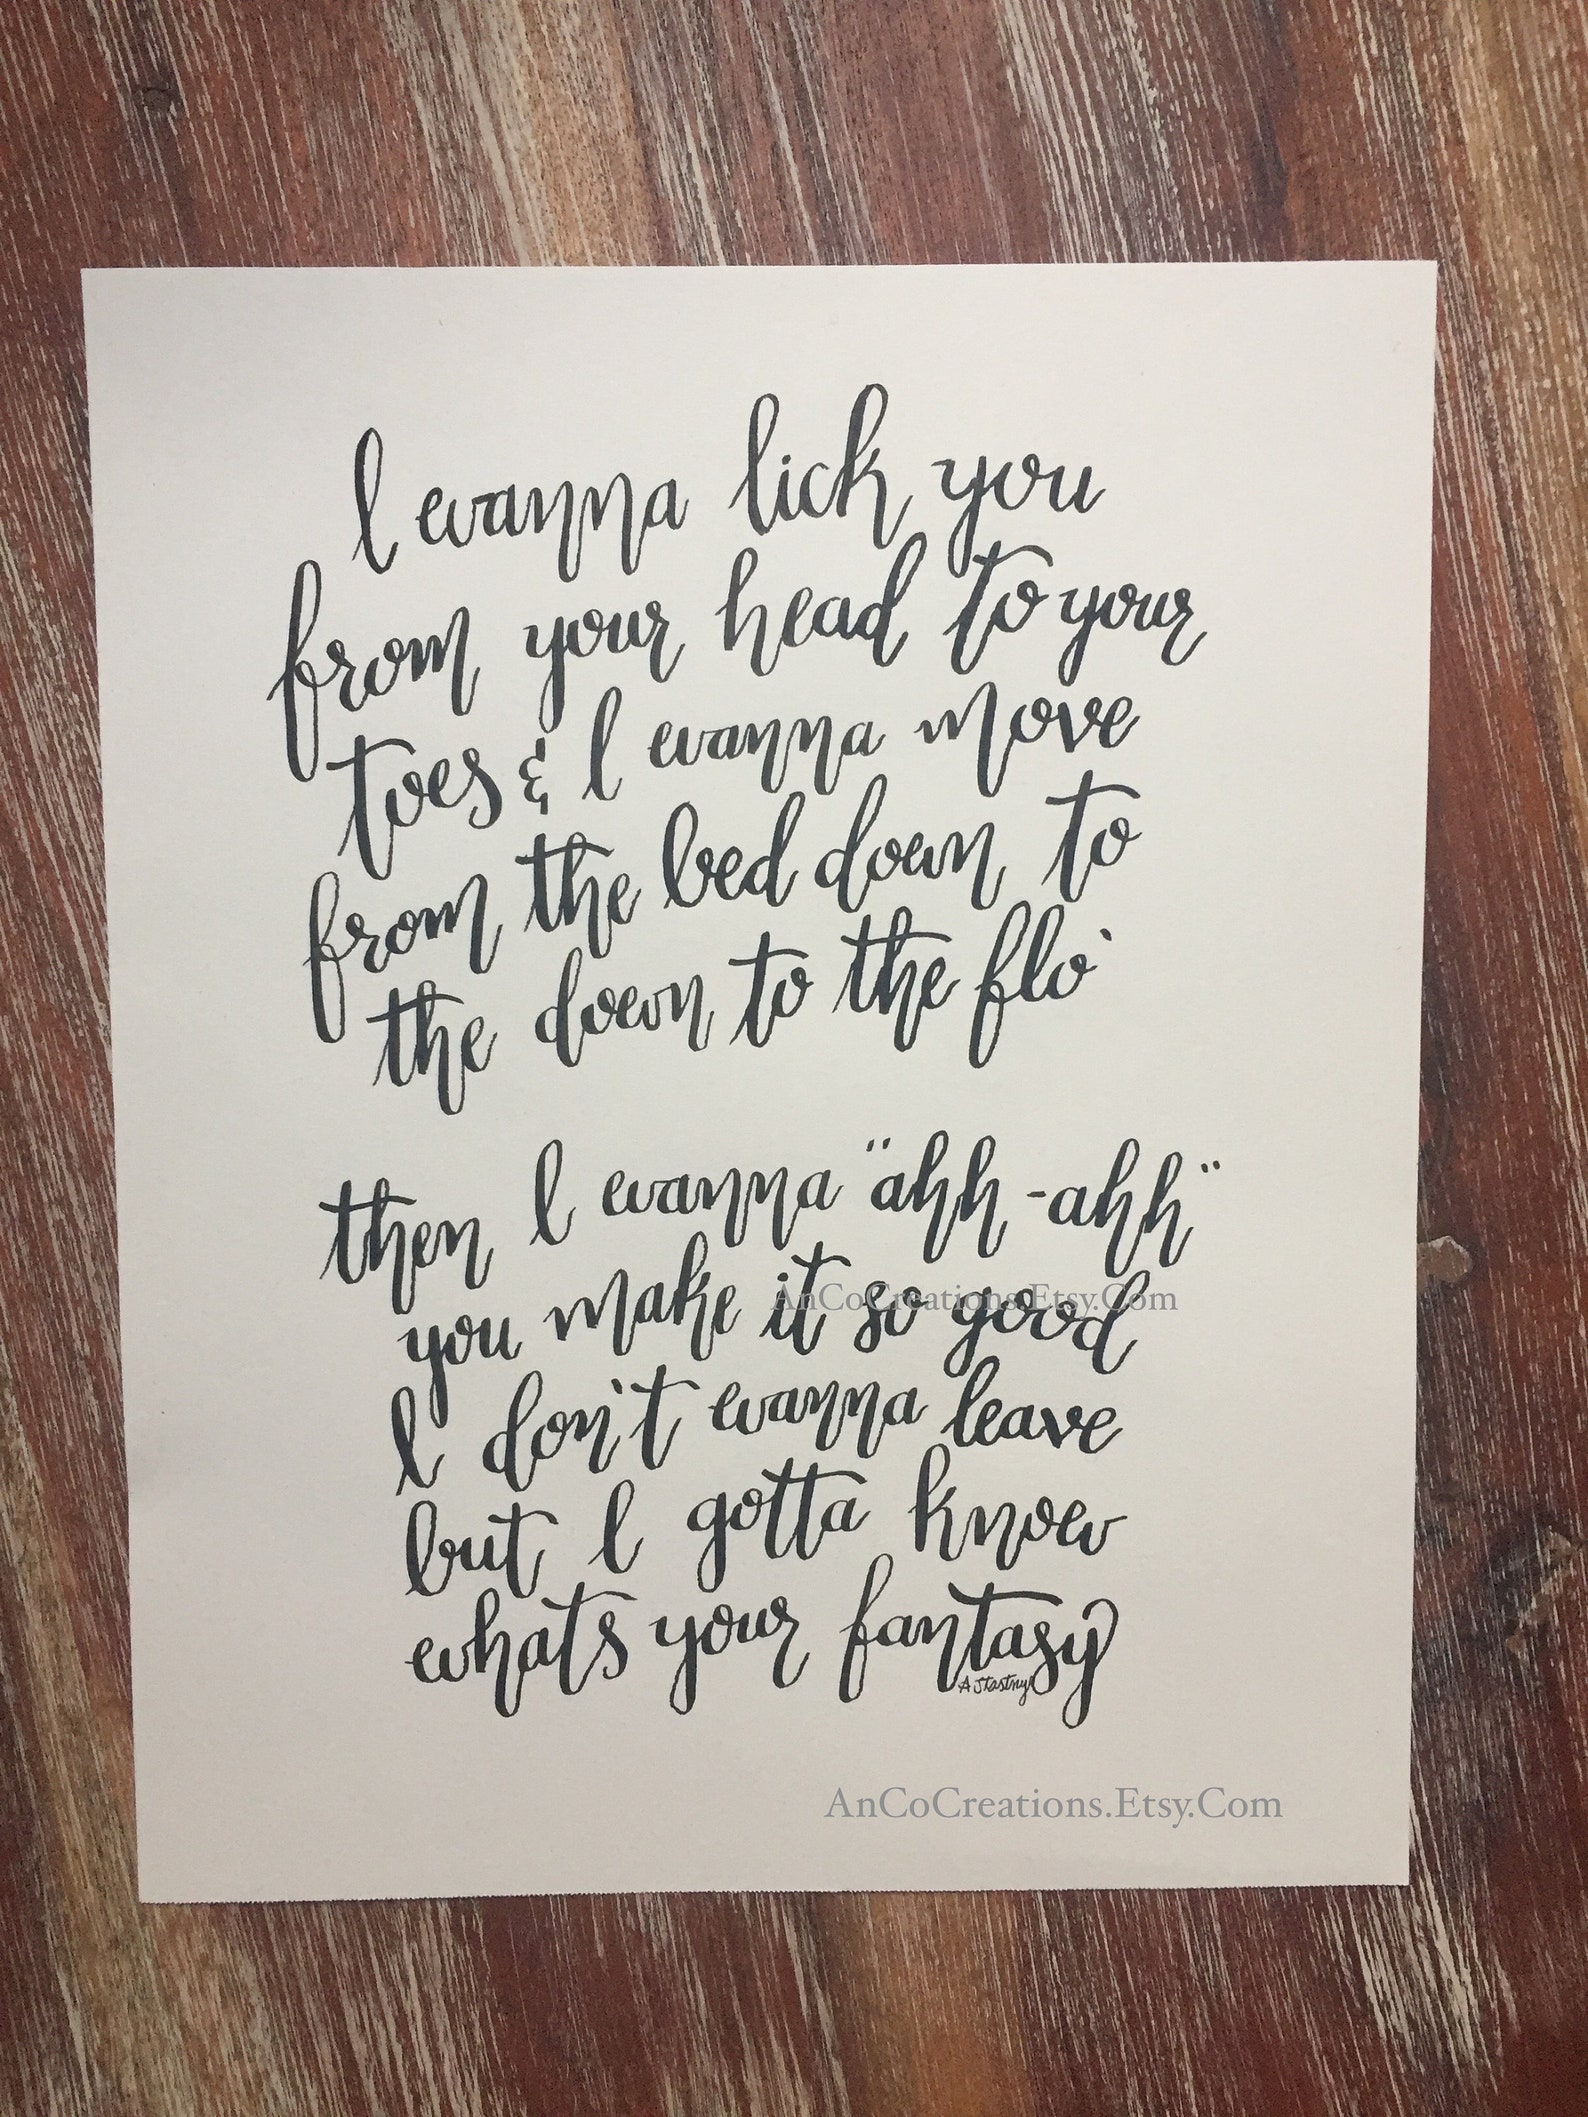 I wanna lick you
from your head to your
toes & I wanna move
from the bed down to
the down to the flo'
then I wanna "ahh-ahh"
you make it so good
I don't wanna leave
but I gotta know
whats your fantasy
A Stastny
AnCoCreations.Etsy.Com
AnCoCreations.Etsy.Com